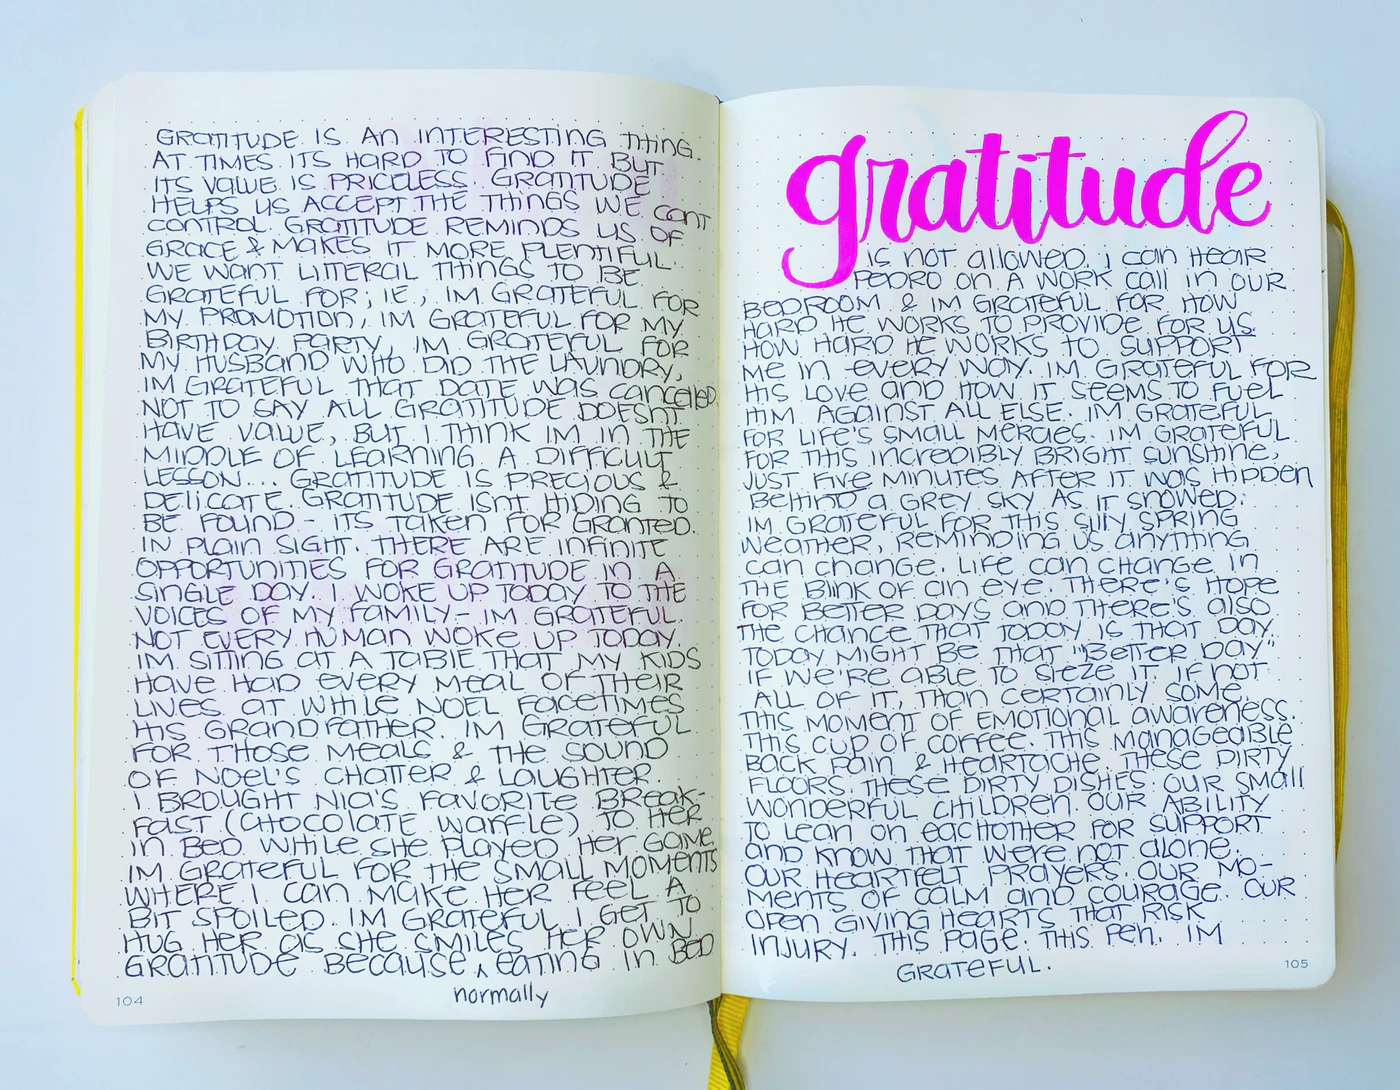 GRATITUDE IS AN INTERESTING THING.
AT TIMES ITS HARD TO FIND IT BUT
ITS VALUE IS PRICELESS. GRATITUDE
HELPS US ACCEPT THE THINGS WE CANT
CONTROL. GRATITUDE REMINDS US OF
GRACE & MAKES IT MORE PLENTIFUL.
WE WANT LITTERAL THINGS TO BE
GRATEFUL FOR; IE, IM GRATEFUL FOR
MY PROMOTION, IM GRATEFUL FOR MY
BIRTHDAY PARTY, IM GRATEFUL FOR
MY HUSBAND WHO DID THE LAUNDRY,
IM GRATEFUL THAT DATE WAS CANCELLED.
NOT TO SAY ALL GRATITUDE DOESNT
HAVE VALUE, BUT I THINK IM IN THE
MIDDLE OF LEARNING A DIFFICULT
LESSON... GRATITUDE IS PRECIOUS &
DELICATE. GRATITUDE ISNT HIDING TO
BE FOUND - ITS TAKEN FOR GRANTED.
IN PLAIN SIGHT. THERE ARE INFINITE
OPPORTUNITIES FOR GRATITUDE IN A
SINGLE DAY. I WOKE UP TODAY TO THE
VOICES OF MY FAMILY - IM GRATEFUL
NOT EVERY HUMAN WOKE UP TODAY.
IM SITTING AT A TABLE THAT MY KIDS
HAVE HAD EVERY MEAL OF THEIR
LIVES AT WHILE NOEL FACETIMES
HIS GRANDFATHER. IM GRATEFUL
FOR THOSE MEALS & THE SOUND
OF NOEL'S CHATTER & LAUGHTER.
I BROUGHT NIA'S FAVORITE BREAK-
FAST (CHOCOLATE WAFFLE) TO HER
IN BED WHILE SHE PLAYED HER GAME.
IM GRATEFUL FOR THE SMALL MOMENTS
WHERE I CAN MAKE HER FEEL A
BIT SPOILED. IM GRATEFUL I GET TO
HUG HER AS SHE SMILES HER OWN
GRATITUDE BECAUSE ^ EATING IN BED
normally
104
gratitude
IS NOT ALLOWED. I CAN HEAR
PEDRO ON A WORK CALL IN OUR
BEDROOM & IM GRATEFUL FOR HOW
HARD HE WORKS TO PROVIDE FOR US.
HOW HARD HE WORKS TO SUPPORT
ME IN EVERY WAY. IM GRATEFUL FOR
HIS LOVE AND HOW IT SEEMS TO FUEL
HIM AGAINST ALL ELSE. IM GRATEFUL
FOR LIFE'S SMALL MERCIES. IM GRATEFUL
FOR THIS INCREDIBLY BRIGHT SUNSHINE,
JUST FIVE MINUTES AFTER IT WAS HIDDEN
BEHIND A GREY SKY AS IT SNOWED.
IM GRATEFUL FOR THIS SILLY SPRING
WEATHER, REMINDING US ANYTHING
CAN CHANGE. LIFE CAN CHANGE IN
THE BLINK OF AN EYE. THERE'S HOPE
FOR BETTER DAYS AND THERE'S ALSO
THE CHANCE THAT TODAY IS THAT DAY.
TODAY MIGHT BE THAT "BETTER DAY"
IF WE'RE ABLE TO SIEZE IT. IF NOT
ALL OF IT, THAN CERTAINLY SOME.
THIS MOMENT OF EMOTIONAL AWARENESS.
THIS CUP OF COFFEE. THIS MANAGEABLE
BACK PAIN & HEARTACHE. THESE DIRTY
FLOORS. THESE DIRTY DISHES. OUR SMALL
WONDERFUL CHILDREN. OUR ABILITY
TO LEAN ON EACHOTHER FOR SUPPORT
AND KNOW THAT WERE NOT ALONE.
OUR HEARTFELT PRAYERS. OUR MO-
MENTS OF CALM AND COURAGE. OUR
OPEN GIVING HEARTS THAT RISK
INJURY. THIS PAGE. THIS PEN. IM
GRATEFUL.
105